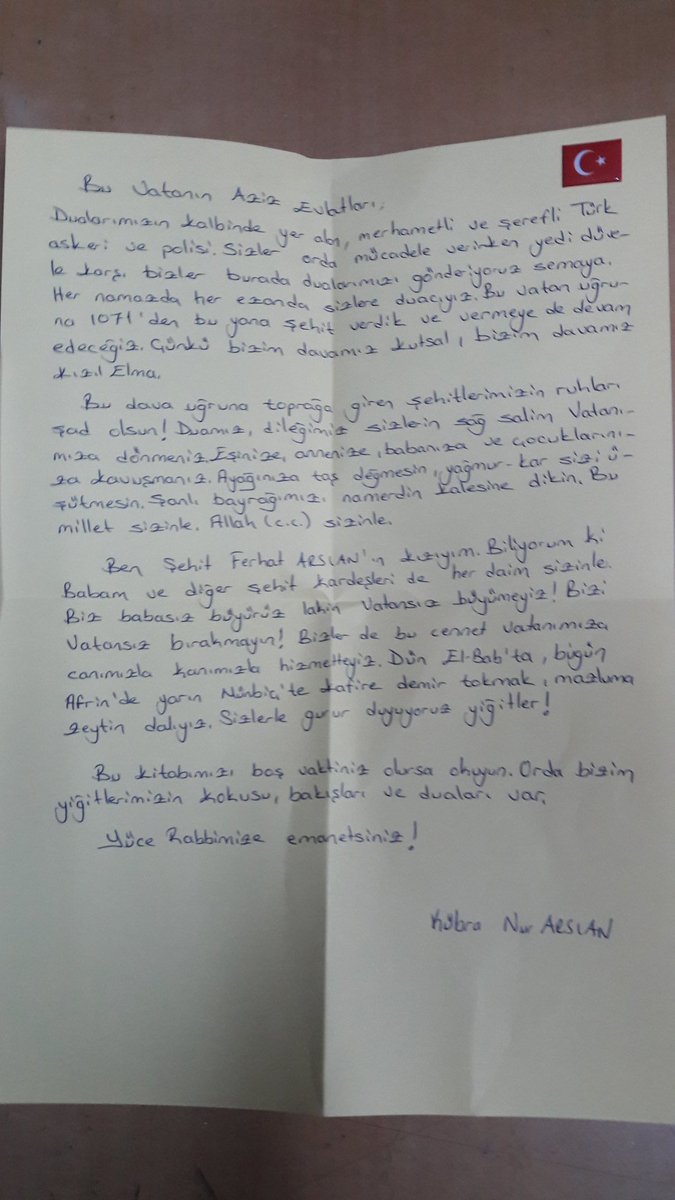 Bu Vatanın Aziz Evlatları,
Dualarımızın kalbinde yer alan, merhametli ve şerefli Türk
askeri ve polisi. Sizler orda mücadele verirken yedi düve-
le karşı bizler burada dualarımızı gönderiyoruz semaya.
Her namazda her ezanda sizlere duacıyız. Bu vatan uğru-
na 1071'den bu yana şehit verdik ve vermeye de devam
edeceğiz. Çünkü bizim davamız kutsal, bizim davamız
Kızıl Elma.
Bu dava uğruna toprağa giren şehitlerimizin ruhları
şad olsun! Duamız, dileğimiz sizlerin sağ salim Vatanı-
mıza dönmeniz. Eşinize, annenize, babanıza ve çocuklarını-
za kavuşmanız. Ayağınıza taş değmesin, yağmur-kar sizi ü-
şütmesin. Şanlı bayrağımızı namerdin kalesine dikin. Bu
millet sizinle. Allah (c.c.) sizinle.
Ben Şehit Ferhat ARSLAN'ın kızıyım. Biliyorum ki
Babam ve diğer şehit kardeşleri de her daim sizinle.
Biz babasız büyürüz lakin Vatansız büyümeyiz! Bizi
Vatansız bırakmayın! Bizler de bu cennet vatanımıza
canımızla kanımızla hizmetteyiz. Dün El-Bab'ta, bugün
Afrin'de yarın Münbiç'te kafire demir tokmak, mazluma
zeytin dalıyız. Sizlerle gurur duyuyoruz yiğitler!
Bu kitabımızı boş vaktiniz olursa okuyun. Orda bizim
yiğitlerimizin kokusu, bakışları ve duaları var.
Yüce Rabbimize emanetsiniz!
Kübra Nur ARSLAN